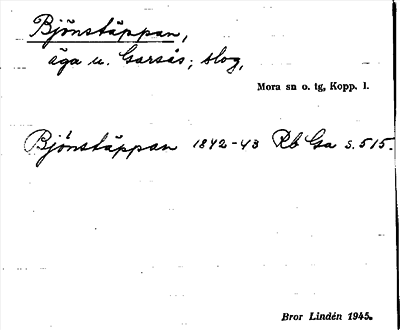 Bjönstäppan,
äga u. Garsås; slog,
Mora sn o. tg, Kopp. l.
Bjönstäppan 1842-43 Rb Ga s. 515.
Bror Lindén 1945.